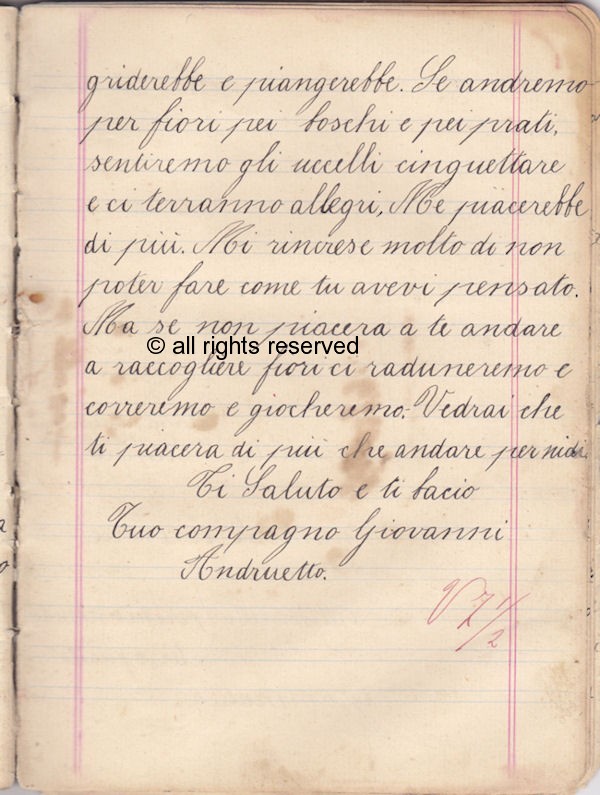 griderebbe e piangerebbe. Se andremo
per fiori pei boschi e pei prati,
sentiremo gli uccelli cinguettare
e ci terranno allegri, Me piacerebbe
di più. Mi rincrese molto di non
poter fare come tu avevi pensato.
Ma se non piacera a te andare
© all rights reserved
a raccogliere fiori ci raduneremo e
correremo e giocheremo. Vedrai che
ti piacera di più che andare per nidi.
Ti Saluto e ti bacio
Tuo compagno Giovanni
Andruetto.
7 1/2